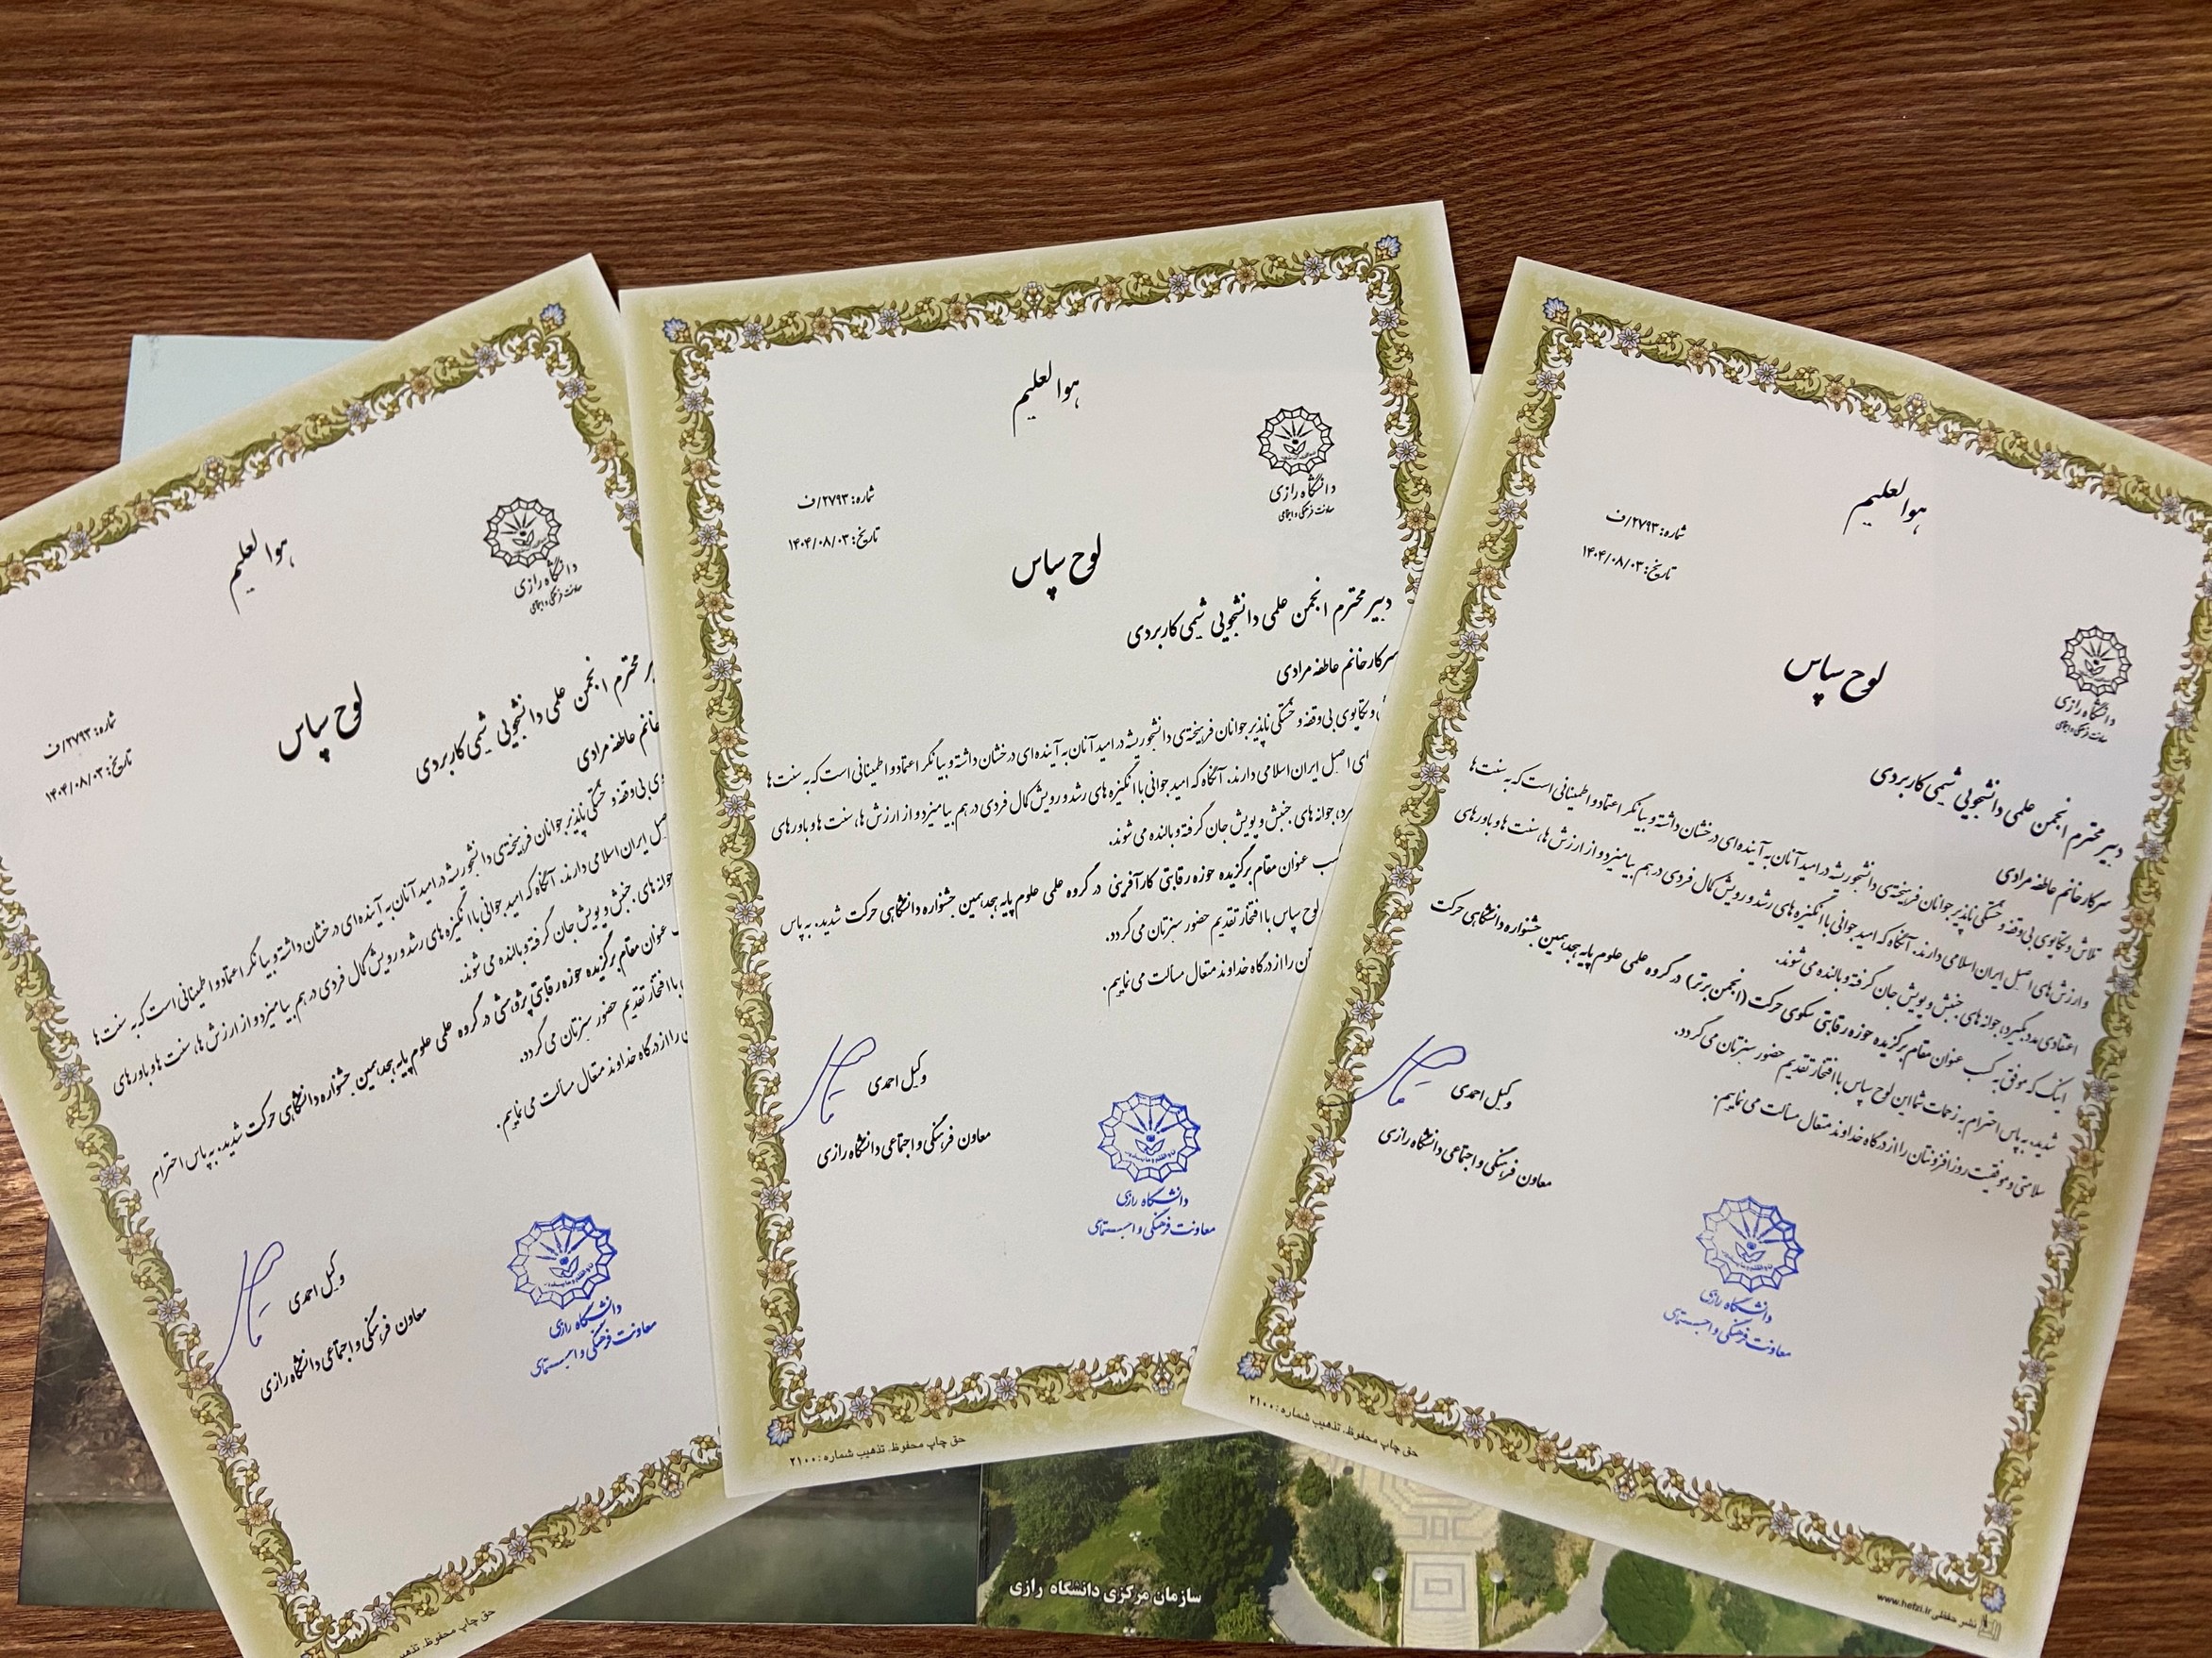 هوالعلیم
دانشگاه رازی
معاونت فرهنگی و اجتماعی
شماره: ۲۷۹۳/ف
تاریخ: ۱۴۰۴/۰۸/۰۳
لوح سپاس
دبیر محترم انجمن علمی دانشجویی شیمی کاربردی
سرکار خانم عاطفه مرادی
تلاش و تکاپوی بی‌وقفه و خستگی ناپذیر جوانان فرهیخته‌ی دانشجو ریشه در امید آنان به آینده‌ای درخشان داشته و بیانگر اعتماد و اطمینانی است که به سنت‌ها
و ارزش‌های اصیل ایران اسلامی دارند. آنگاه که امید جوانی با انگیزه‌های رشد و رویش کمال فردی در هم بیامیزد و از ارزش‌ها، سنت‌ها و باورهای
اعتقادی مدد بگیرد، جوانه‌های جنبش و پویش جان گرفته و بالنده می‌شوند.
اینک که موفق به کسب عنوان مقام برگزیده حوزه رقابتی سکوی حرکت (انجمن برتر) در گروه علمی علوم پایه هجدهمین جشنواره دانشگاهی حرکت
شدید، به پاس احترام به زحمات شما این لوح سپاس با افتخار تقدیم حضور سبزتان می‌گردد.
سلامتی و موفقیت روزافزونتان را از درگاه خداوند متعال مسألت می‌نماییم.
وکیل احمدی
معاون فرهنگی و اجتماعی دانشگاه رازی
دانشگاه رازی
معاونت فرهنگی و اجتماعی
حق چاپ محفوظ. تذهیب شماره: ۲۱۰۰
نشر حفظی www.hefzi.ir
هوالعلیم
دانشگاه رازی
معاونت فرهنگی و اجتماعی
شماره: ۲۷۹۳/ف
تاریخ: ۱۴۰۴/۰۸/۰۳
لوح سپاس
دبیر محترم انجمن علمی دانشجویی شیمی کاربردی
سرکار خانم عاطفه مرادی
و تکاپوی بی‌وقفه و خستگی ناپذیر جوانان فرهیخته‌ی دانشجو ریشه در امید آنان به آینده‌ای درخشان داشته و بیانگر اعتماد و اطمینانی است که به سنت‌ها
اصیل ایران اسلامی دارند. آنگاه که امید جوانی با انگیزه‌های رشد و رویش کمال فردی در هم بیامیزد و از ارزش‌ها، سنت‌ها و باورهای
جوانه‌های جنبش و پویش جان گرفته و بالنده می‌شوند.
عنوان مقام برگزیده حوزه رقابتی کارآفرینی در گروه علمی علوم پایه هجدهمین جشنواره دانشگاهی حرکت شدید، به پاس
لوح سپاس با افتخار تقدیم حضور سبزتان می‌گردد.
را از درگاه خداوند متعال مسألت می‌نماییم.
وکیل احمدی
معاون فرهنگی و اجتماعی دانشگاه رازی
دانشگاه رازی
معاونت فرهنگی و اجتماعی
حق چاپ محفوظ. تذهیب شماره: ۲۱۰۰
هوالعلیم
دانشگاه رازی
معاونت فرهنگی و اجتماعی
شماره: ۲۷۹۳/ف
تاریخ: ۱۴۰۴/۰۸/۰۳
لوح سپاس
محترم انجمن علمی دانشجویی شیمی کاربردی
خانم عاطفه مرادی
بی‌وقفه و خستگی ناپذیر جوانان فرهیخته‌ی دانشجو ریشه در امید آنان به آینده‌ای درخشان داشته و بیانگر اعتماد و اطمینانی است که به سنت‌ها
ایران اسلامی دارند. آنگاه که امید جوانی با انگیزه‌های رشد و رویش کمال فردی در هم بیامیزد و از ارزش‌ها، سنت‌ها و باورهای
جوانه‌های جنبش و پویش جان گرفته و بالنده می‌شوند.
عنوان مقام برگزیده حوزه رقابتی پژوهشی در گروه علمی علوم پایه هجدهمین جشنواره دانشگاهی حرکت شدید، به پاس احترام
با افتخار تقدیم حضور سبزتان می‌گردد.
را از درگاه خداوند متعال مسألت می‌نماییم.
وکیل احمدی
معاون فرهنگی و اجتماعی دانشگاه رازی
دانشگاه رازی
معاونت فرهنگی و اجتماعی
حق چاپ محفوظ.
سازمان مرکزی دانشگاه رازی